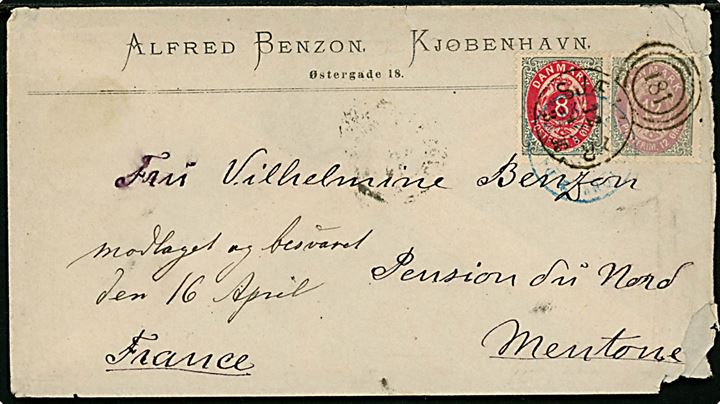 ALFRED BENZON, KJØBENHAVN.
Østergade 18.
DANMARK
8
POSTFRIM. 8 ØRE
181
12
Fru Vilhelmine Benzon
modtaget og besvaret
den 16 April
Pension du Nord
France
Mentone